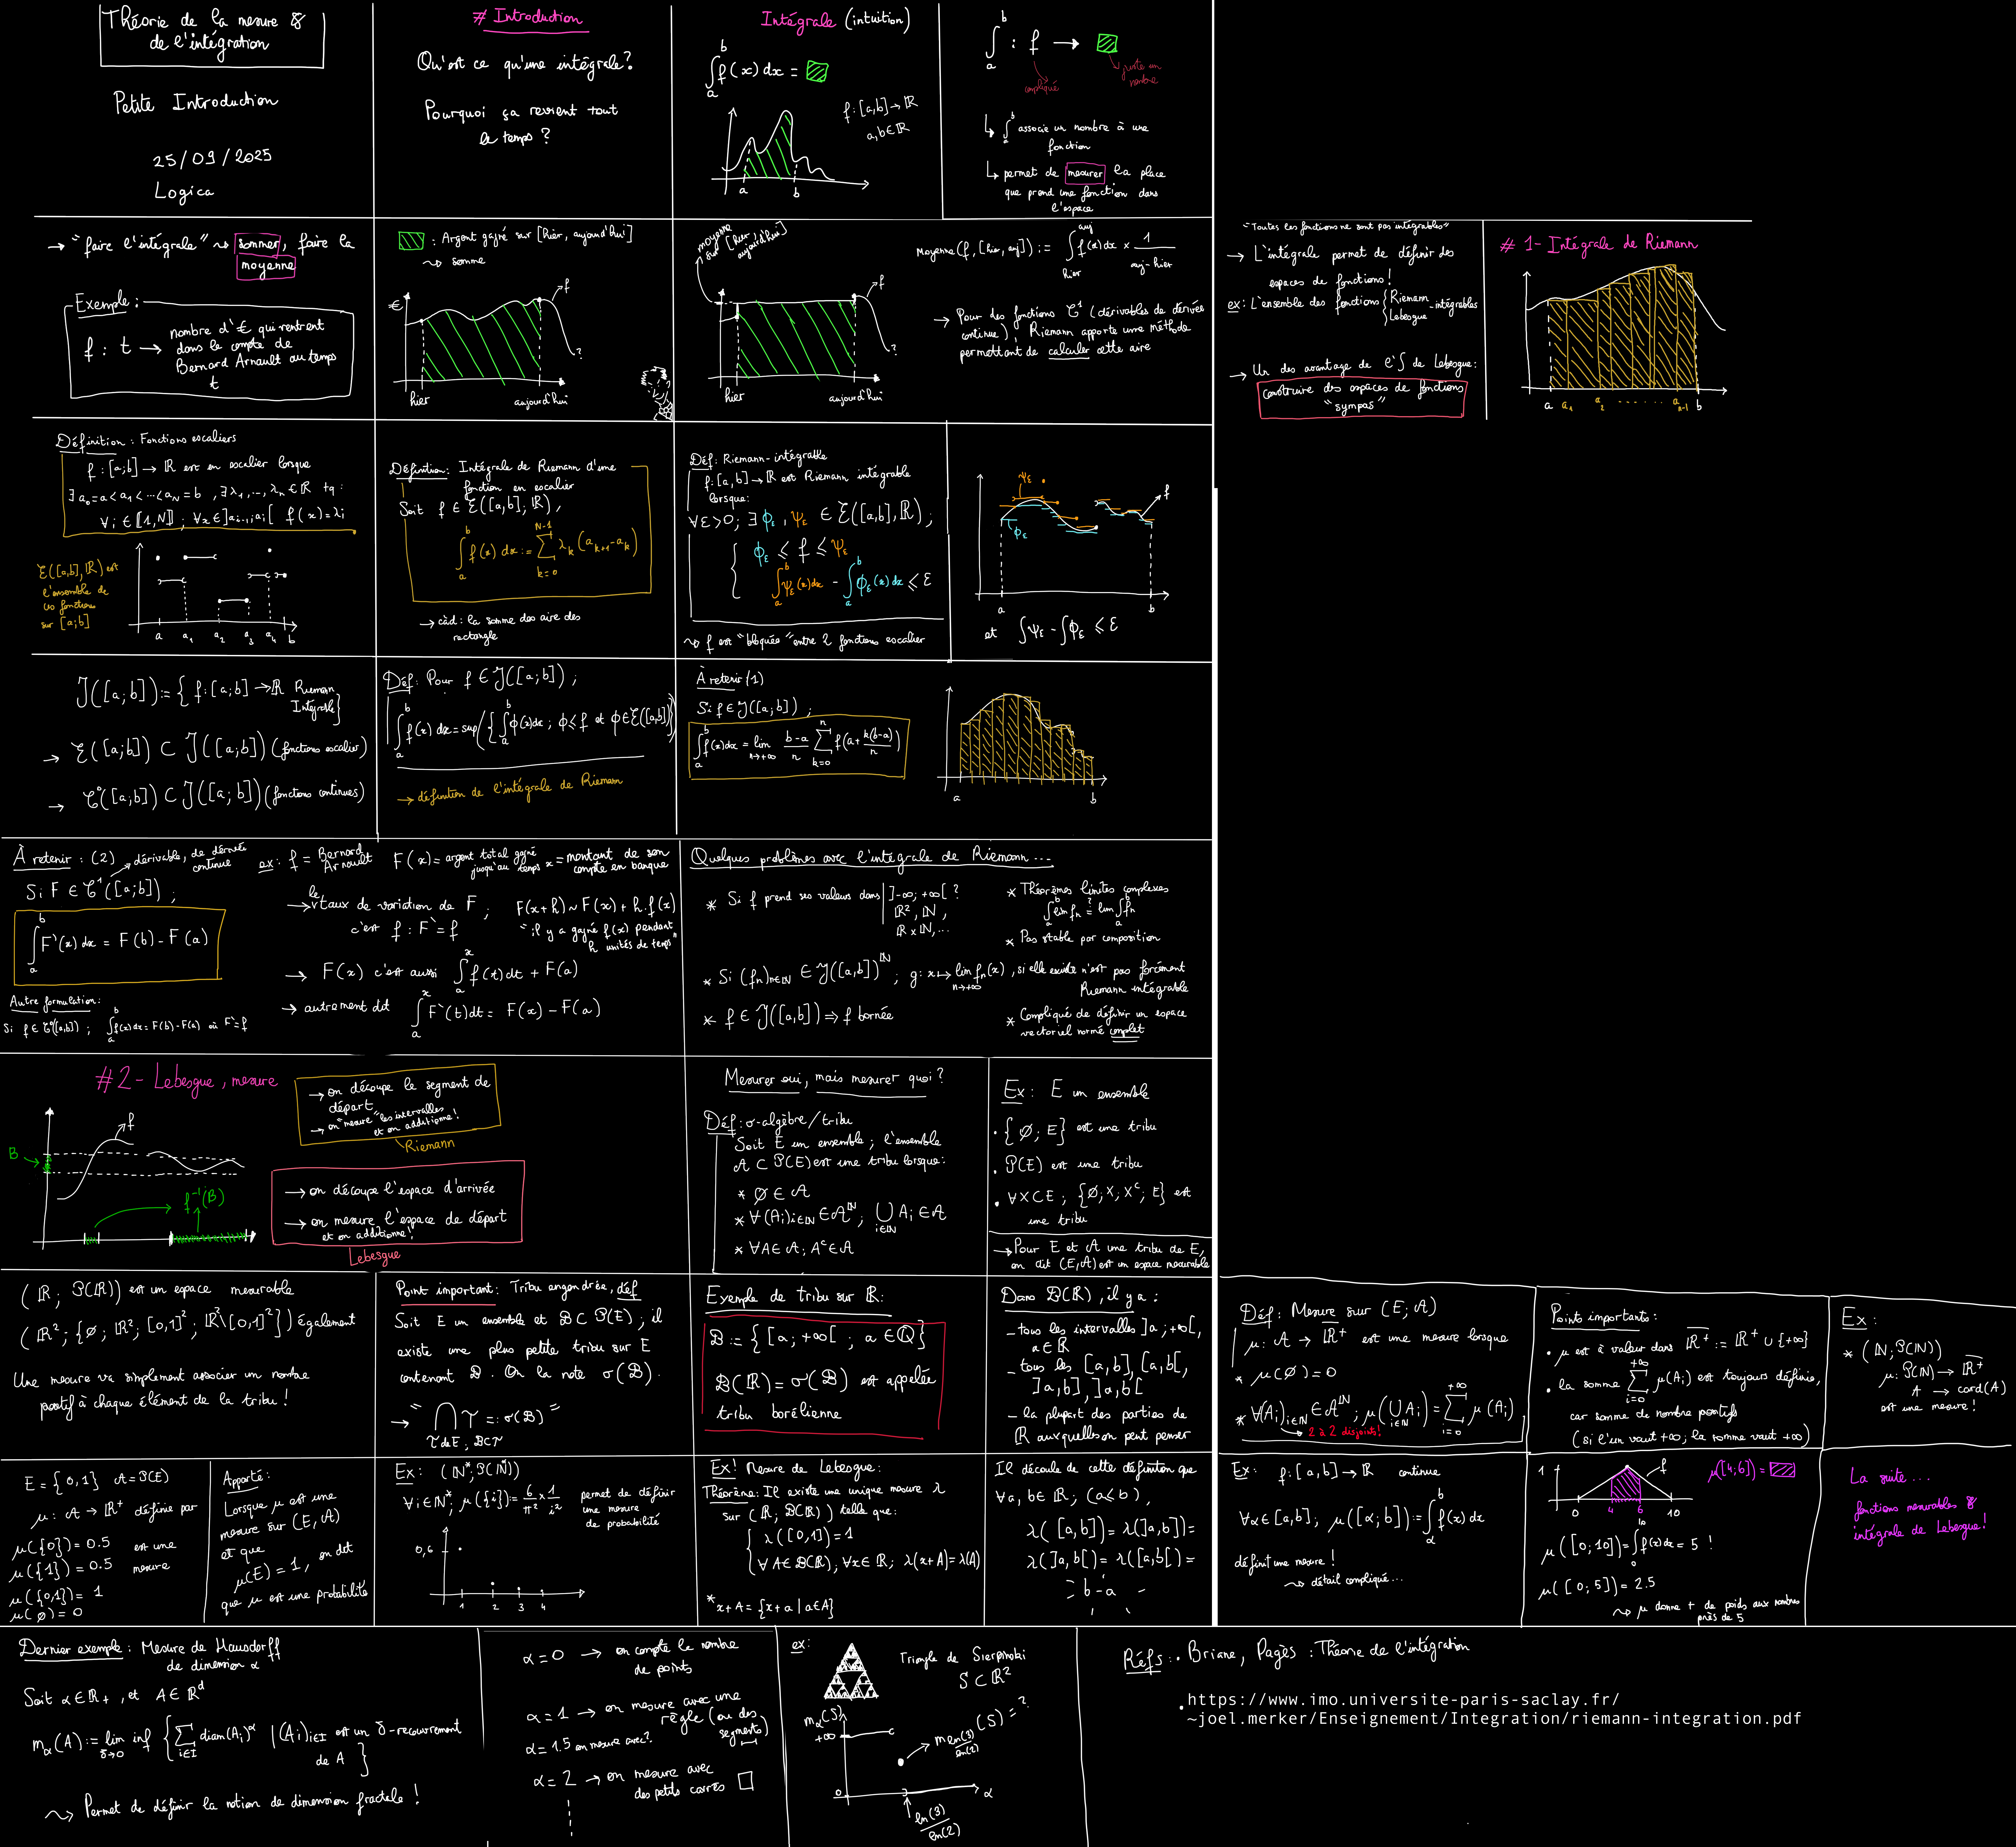 Théorie de la mesure &
de l'intégration
Petite Introduction
25/09/2025
Logica
# Introduction
Qu'est ce qu'une intégrale?
Pourquoi ça revient tout
le temps ?
Intégrale (intuition)
∫_a^b f(x) dx =
f: [a,b] → ℝ
a,b ∈ ℝ
a b
∫_a^b : f →
compliqué
juste un
nombre
↳ ∫_a^b associe un nombre à une
fonction
↳ permet de mesurer la place
que prend une fonction dans
l'espace
→ "faire l'intégrale" ⇝ sommer, faire la
moyenne
Exemple :
f : t → nombre d'€ qui rentrent
dans le compte de
Bernard Arnault au temps
t
: Argent gagné sur [hier, aujourd'hui]
⇝ somme
€
f
?
hier aujourd'hui
moyenne
sur [hier,
aujourd'hui]
f
?
hier aujourd'hui
Moyenne(f, [hier, auj]) := ∫_hier^auj f(x) dx × 1/(auj-hier)
→ Pour des fonctions C¹ (dérivables de dérivée
continue), Riemann apporte une méthode
permettant de calculer cette aire
"Toutes les fonctions ne sont pas intégrables"
→ L'intégrale permet de définir des
espaces de fonctions!
ex: L'ensemble des fonctions { Riemann
Lebesgue -intégrables
→ Un des avantage de l'∫ de Lebesgue:
construire des espaces de fonctions
"sympas"
# 1- Intégrale de Riemann
a a₁ a₂ ...... a_{n-1} b
Définition : Fonctions escaliers
f : [a;b] → ℝ est en escalier lorsque
∃ a₀=a<a₁<...<a_N=b , ∃ λ₁,...,λ_n ∈ ℝ tq :
∀i ∈ ⟦1,N⟧ ; ∀x ∈ ]a_{i-1};a_i[ f(x)=λ_i
ℰ([a,b],ℝ) est
l'ensemble de
ces fonctions
sur [a;b]
a a₁ a₂ a₃ a₄ b
Définition: Intégrale de Riemann d'une
fonction en escalier
Soit f ∈ ℰ([a,b]; ℝ),
∫_a^b f(x) dx := Σ_{k=0}^{N-1} λ_k (a_{k+1}-a_k)
→ càd : la somme des aire des
rectangle
Déf: Riemann-intégrable
f: [a,b] → ℝ est Riemann intégrable
lorsque:
∀ε>0; ∃ ϕ_ε, ψ_ε ∈ ℰ([a,b],ℝ);
{ ϕ_ε ≤ f ≤ ψ_ε
∫_a^b ψ_ε(x)dx - ∫_a^b ϕ_ε(x) dx ≤ ε
⇝ f est "bloquée" entre 2 fonctions escalier
ψ_ε
f
ϕ_ε
a b
et ∫ψ_ε - ∫ϕ_ε ≤ ε
ℐ([a;b]) := { f: [a;b] → ℝ Riemann
Intégrable}
→ ℰ([a;b]) ⊂ ℐ([a;b]) (fonctions escalier)
→ C⁰([a;b]) ⊂ ℐ([a;b]) (fonctions continues)
Déf: Pour f ∈ ℐ([a;b]) ;
∫_a^b f(x) dx = sup({ ∫_a^b ϕ(x)dx ; ϕ≤f et ϕ∈ℰ([a,b])})
→ définition de l'intégrale de Riemann
À retenir (1)
Si f ∈ ℐ([a;b]) ;
∫_a^b f(x)dx = lim_{n→+∞} (b-a)/n Σ_{k=0}^n f(a+k(b-a)/n)
a b
À retenir : (2)
dérivable, de dérivée
continue
Si F ∈ C¹([a;b]) ;
∫_a^b F'(x) dx = F(b) - F(a)
Autre formulation:
Si f ∈ C⁰([a,b]) ; ∫_a^b f(x)dx = F(b)-F(a) où F'=f
ex: f = Bernard
Arnault
F(x) = argent total gagné
jusqu'au temps x = montant de son
compte en banque
→ le taux de variation de F ; F(x+h) ~ F(x) + h.f(x)
c'est f : F'=f
"il y a gagné f(x) pendant
h unités de temps"
→ F(x) c'est aussi ∫_a^x f(t)dt + F(a)
→ autrement dit ∫_a^x F'(t)dt = F(x) - F(a)
Quelques problèmes avec l'intégrale de Riemann...
* Si f prend ses valeurs dans | ]-∞; +∞[ ?
ℝ², ℕ,
ℝ×ℕ,...
* Théorèmes limites complexes
∫_a^b lim f_n =? lim ∫_a^b f_n
* Pas stable par composition
* Si (f_n)_{n∈ℕ} ∈ ℐ([a,b])^ℕ ; g: x ↦ lim_{n→+∞} f_n(x), si elle existe n'est pas forcément
Riemann intégrable
* f ∈ ℐ([a,b]) ⇒ f bornée
* Compliqué de définir un espace
vectoriel normé complet
#2- Lebesgue, mesure
f
B
f⁻¹(B)
→ on découpe le segment de
départ
→ on "mesure" les intervalles
et on additionne!
Riemann
→ on découpe l'espace d'arrivée
→ on mesure l'espace de départ
et on additionne!
Lebesgue
Mesurer oui, mais mesurer quoi ?
Déf: σ-algèbre/tribu
Soit E un ensemble ; l'ensemble
𝒜 ⊂ 𝒫(E) est une tribu lorsque:
* ∅ ∈ 𝒜
* ∀(A_i)_{i∈ℕ} ∈ 𝒜^ℕ ; ⋃_{i∈ℕ} A_i ∈ 𝒜
* ∀A∈𝒜 ; A^c ∈ 𝒜
Ex: E un ensemble
• {∅; E} est une tribu
• 𝒫(E) est une tribu
• ∀X⊂E ; {∅; X; X^c; E} est
une tribu
→ Pour E et 𝒜 une tribu de E,
on dit (E,𝒜) est un espace mesurable
(ℝ; 𝒫(ℝ)) est un espace mesurable
(ℝ²; {∅; ℝ²; [0,1]²; ℝ²\[0,1]²}) également
Une mesure va simplement associer un nombre
positif à chaque élément de la tribu !
Point important: Tribu engendrée, déf
Soit E un ensemble et ℬ ⊂ 𝒫(E) ; il
existe une plus petite tribu sur E
contenant ℬ. On la note σ(ℬ).
→ "⋂_{τ de E; ℬ⊂τ} τ =: σ(ℬ)"
Exemple de tribu sur ℝ:
ℬ := { [a; +∞[ ; a ∈ ℚ}
ℬ(ℝ) = σ(ℬ) est appelée
tribu borélienne
Dans ℬ(ℝ), il y a :
- tous les intervalles ]a; +∞[,
a∈ℝ
- tous les [a,b], [a,b[,
]a,b], ]a,b[
- la plupart des parties de
ℝ auxquelles on peut penser
Déf: Mesure sur (E; 𝒜)
μ: 𝒜 → ℝ⁺ est une mesure lorsque
* μ(∅) = 0
* ∀(A_i)_{i∈ℕ} ∈ 𝒜^ℕ ; μ(⋃_{i∈ℕ} A_i) = Σ_{i=0}^{+∞} μ(A_i)
2 à 2 disjoints!
Points importants :
• μ est à valeur dans ℝ⁺ := ℝ⁺ ∪ {+∞}
• la somme Σ_{i=0}^{+∞} μ(A_i) est toujours définie,
car somme de nombre positifs
(si l'un vaut +∞; la somme vaut +∞)
Ex :
* (ℕ; 𝒫(ℕ))
μ: 𝒫(ℕ) → ℝ⁺
A → card(A)
est une mesure!
E = {0,1} 𝒜 = 𝒫(E)
μ: 𝒜 → ℝ⁺ définie par
μ({0}) = 0.5 est une
μ({1}) = 0.5 mesure
μ({0,1}) = 1
μ(∅) = 0
Aparté:
Lorsque μ est une
mesure sur (E,𝒜)
et que
μ(E) = 1, on dit
que μ est une probabilité
Ex: (ℕ*; 𝒫(ℕ*))
∀i∈ℕ*; μ({i}) := 6/π² × 1/i² permet de définir
une mesure
de probabilité
0,6
1 2 3 4
Ex! Mesure de Lebesgue:
Théorème: Il existe une unique mesure λ
sur (ℝ; ℬ(ℝ)) telle que:
{ λ([0,1]) = 1
∀A∈ℬ(ℝ); ∀x∈ℝ; λ(x+A) = λ(A)
* x+A = {x+a | a∈A}
Il découle de cette définition que
∀a,b∈ℝ; (a≤b),
λ([a,b]) = λ(]a,b]) =
λ(]a,b[) = λ([a,b[) =
b-a
Ex: f: [a,b] → ℝ continue
∀α∈[a,b], μ([α;b]) := ∫_α^b f(x) dx
définit une mesure !
⇝ détail compliqué...
1
f
0 4 6 10
μ([4;6]) =
μ([0;10]) = ∫_0^10 f(x)dx = 5 !
μ([0;5]) = 2.5
⇝ μ donne + de poids aux nombres
près de 5
La suite...
fonctions mesurables &
intégrale de Lebesgue!
Dernier exemple : Mesure de Hausdorff
de dimension α
Soit α∈ℝ₊, et A∈ℝ^d
m_α(A) := lim_{δ→0} inf { Σ_{i∈I} diam(A_i)^α | (A_i)_{i∈I} est un δ-recouvrement
de A }
⇝ Permet de définir la notion de dimension fractale !
α=0 → on compte le nombre
de points
α=1 → on mesure avec une
règle (ou des
segments)
α=1.5 on mesure avec?
α=2 → on mesure avec
des petits carrés
ex:
Triangle de Sierpinski
S ⊂ ℝ²
m_α(S)
+∞
m_{ln(3)/ln(2)}(S) = ?
0
α
ln(3)/ln(2)
Réfs : • Briane, Pagès : Théorie de l'intégration
• https://www.imo.universite-paris-saclay.fr/
~joel.merker/Enseignement/Integration/riemann-integration.pdf